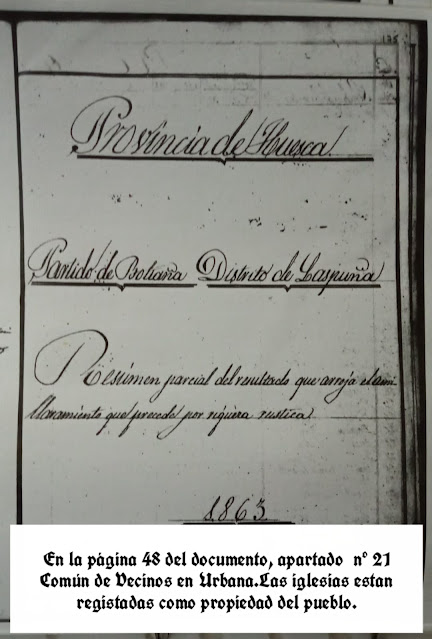 135
Provincia de Huesca.
Partido de Boltaña Distrito de Laspuña
Resúmen parcial del resultado que arroja el ami-
llaramiento que precede por riqueza rustica
1863.
En la página 48 del documento, apartado nº 21
Común de Vecinos en Urbana.Las iglesias estan
registadas como propiedad del pueblo.